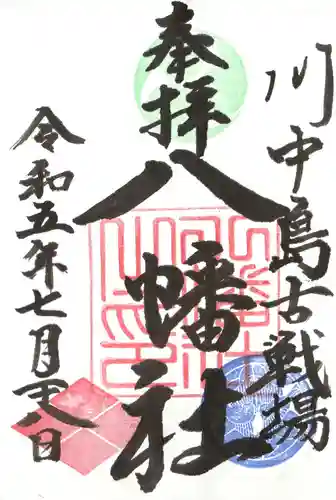 川中島古戦場
奉拝
八幡社
令和五年七月廿八日